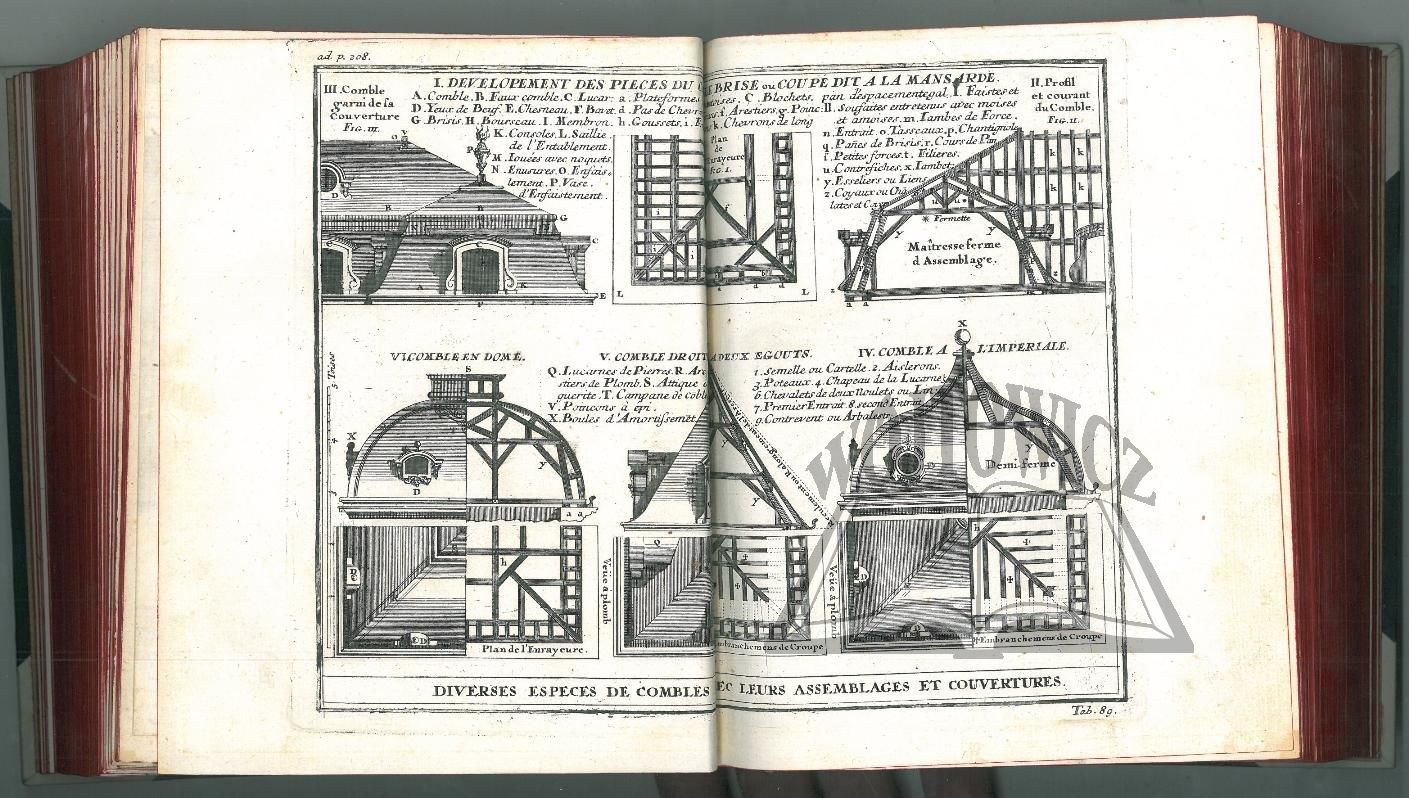 ad. p. 208.
I. DEVELOPEMENT DES PIECES DU BRISE ou COUPÉ DIT A LA MANSARDE.
III. Comble
garni de sa
Couverture
FIG. III.
A. Comble. B. Faux comble. C. Lucar: a. Plateformes
D. Yeux de Beuf. E. Chesneau. F. Bavet. d. Pas de Chevr
G. Brisis. H. Bourseau. I. Membron. h. Goussets. i.
K. Consoles. L. Saillie
de l'Entablement.
M. Jouées avec noquets.
N. Enusures. O. Enfais-
lement. P. Vase
d'Enfaistement.
Plan
de
Enrayeure
FIG. I.
C. Blochets, pan d'espacement egal. I. Faistes et
f. Arestiers. g. Poinc: ll. Sousfaites entretenus avec moises
k. Chevrons de long
et amoises. m. Jambes de Force.
n. Entrait. o. Tasseaux. p. Chantignole
q. Pañes de Brisis. r. Cours de Pan
f. Petites forces. t. Filieres.
u. Contrefiches. x. Jambet
y. Esseliers ou Liens
z. Coyaux ou
II. Profil
et courant
du Comble.
FIG. II.
* Fermette
Maîtresse ferme
d'Assemblage.
VI. COMBLE EN DOME.
V. COMBLE DROIT A DEUX EGOUTS.
IV. COMBLE A L'IMPERIALE.
Q. Lucarnes de Pierres. R. Are
stiers de Plomb. S. Attique
guerite. T. Campane de coble
V. Poincons à epi.
X. Boules d'Amortissemēt.
1. Semelle ou Cartelle. 2. Aislerons.
3. Poteaux. 4. Chapeau de la Lucarne
6. Chevalets de deux Noulets ou
7. Premier Entrait. 8. second Entrait
9. Contrevent ou Arbalestr
5 Trises
Demi-ferme
Veue a plomb
Veue a plomb
Plan de l'Enrayeure.
Embranchemens de Croupe
Embranchemens de Croupe
DIVERSES ESPECES DE COMBLES EC LEURS ASSEMBLAGES ET COUVERTURES.
Tab. 89.
WÓJTOWICZ